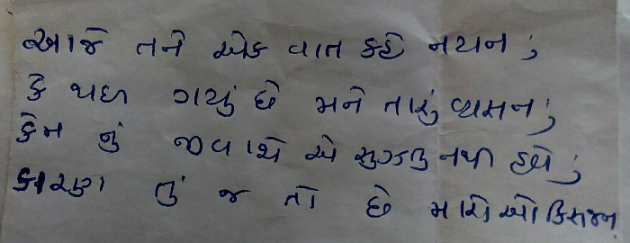 આજે તને એક વાત કહે નયન;
કે થઇ ગયું છે મને તારું વ્યસન;
કેમ નું જીવાશે એ સુઝતુ નથી હવે;
કારણ તું જ તો છે મારો ઓક્સિજન